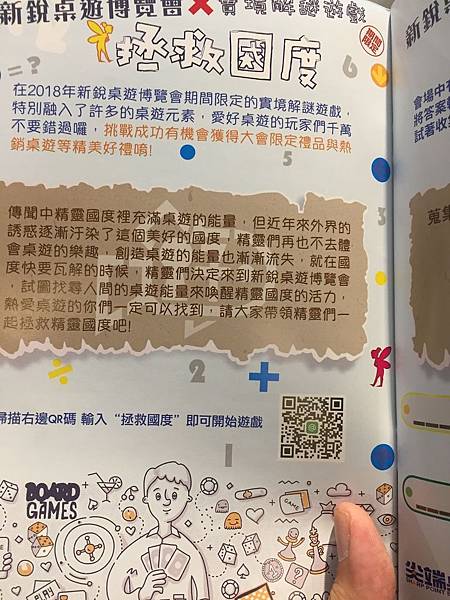 新銳桌遊博覽會×實境解謎遊戲
期間限定
拯救國度
=?
6
在2018年新銳桌遊博覽會期間限定的實境解謎遊戲，
特別融入了許多的桌遊元素，愛好桌遊的玩家們千萬
不要錯過囉，挑戰成功有機會獲得大會限定禮品與熱
銷桌遊等精美好禮唷!
5
3
傳聞中精靈國度裡充滿桌遊的能量，但近年來外界的
誘惑逐漸汙染了這個美好的國度，精靈們再也不去體
會桌遊的樂趣，創造桌遊的能量也漸漸流失，就在國
度快要瓦解的時候，精靈們決定來到新銳桌遊博覽會
，試圖找尋人間的桌遊能量來喚醒精靈國度的活力，
熱愛桌遊的你們一定可以找到，請大家帶領精靈們一
起拯救精靈國度吧!
÷
2
+
掃描右邊QR碼 輸入“拯救國度”即可開始遊戲
1
BOARD
GAMES
PLAY
新銳桌
會場中有
將答案輸
試著收集
蒐集
尖端桌